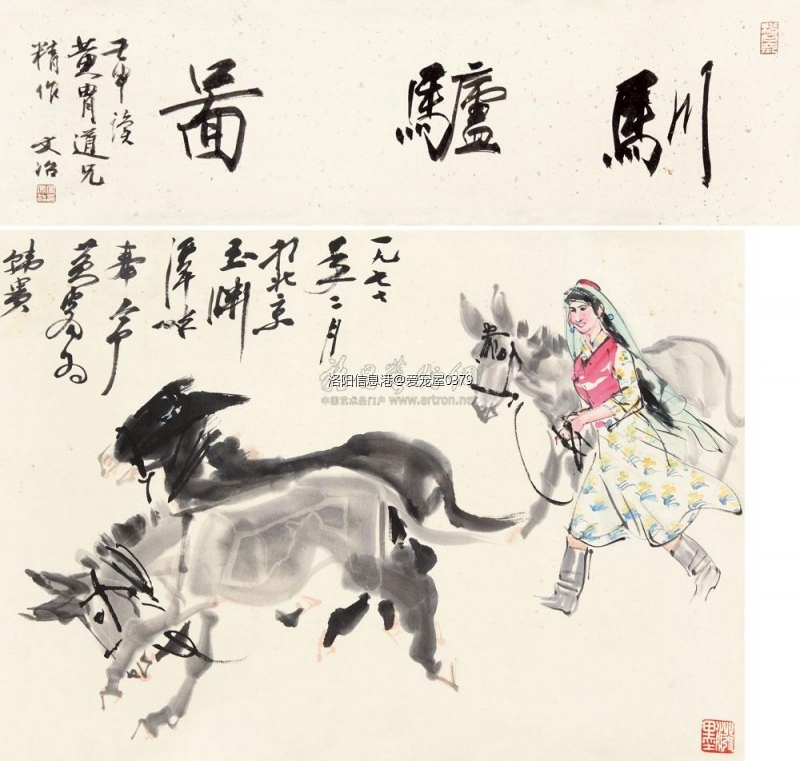 馴驢圖
壬申讀
黄胄道兄
精作 文治
一九七七
二月
於北京
玉渊
潭
黄胄为
雅昌藝術網
中国艺术品门户 www.artron.net
洛阳信息港@爱宠屋0379